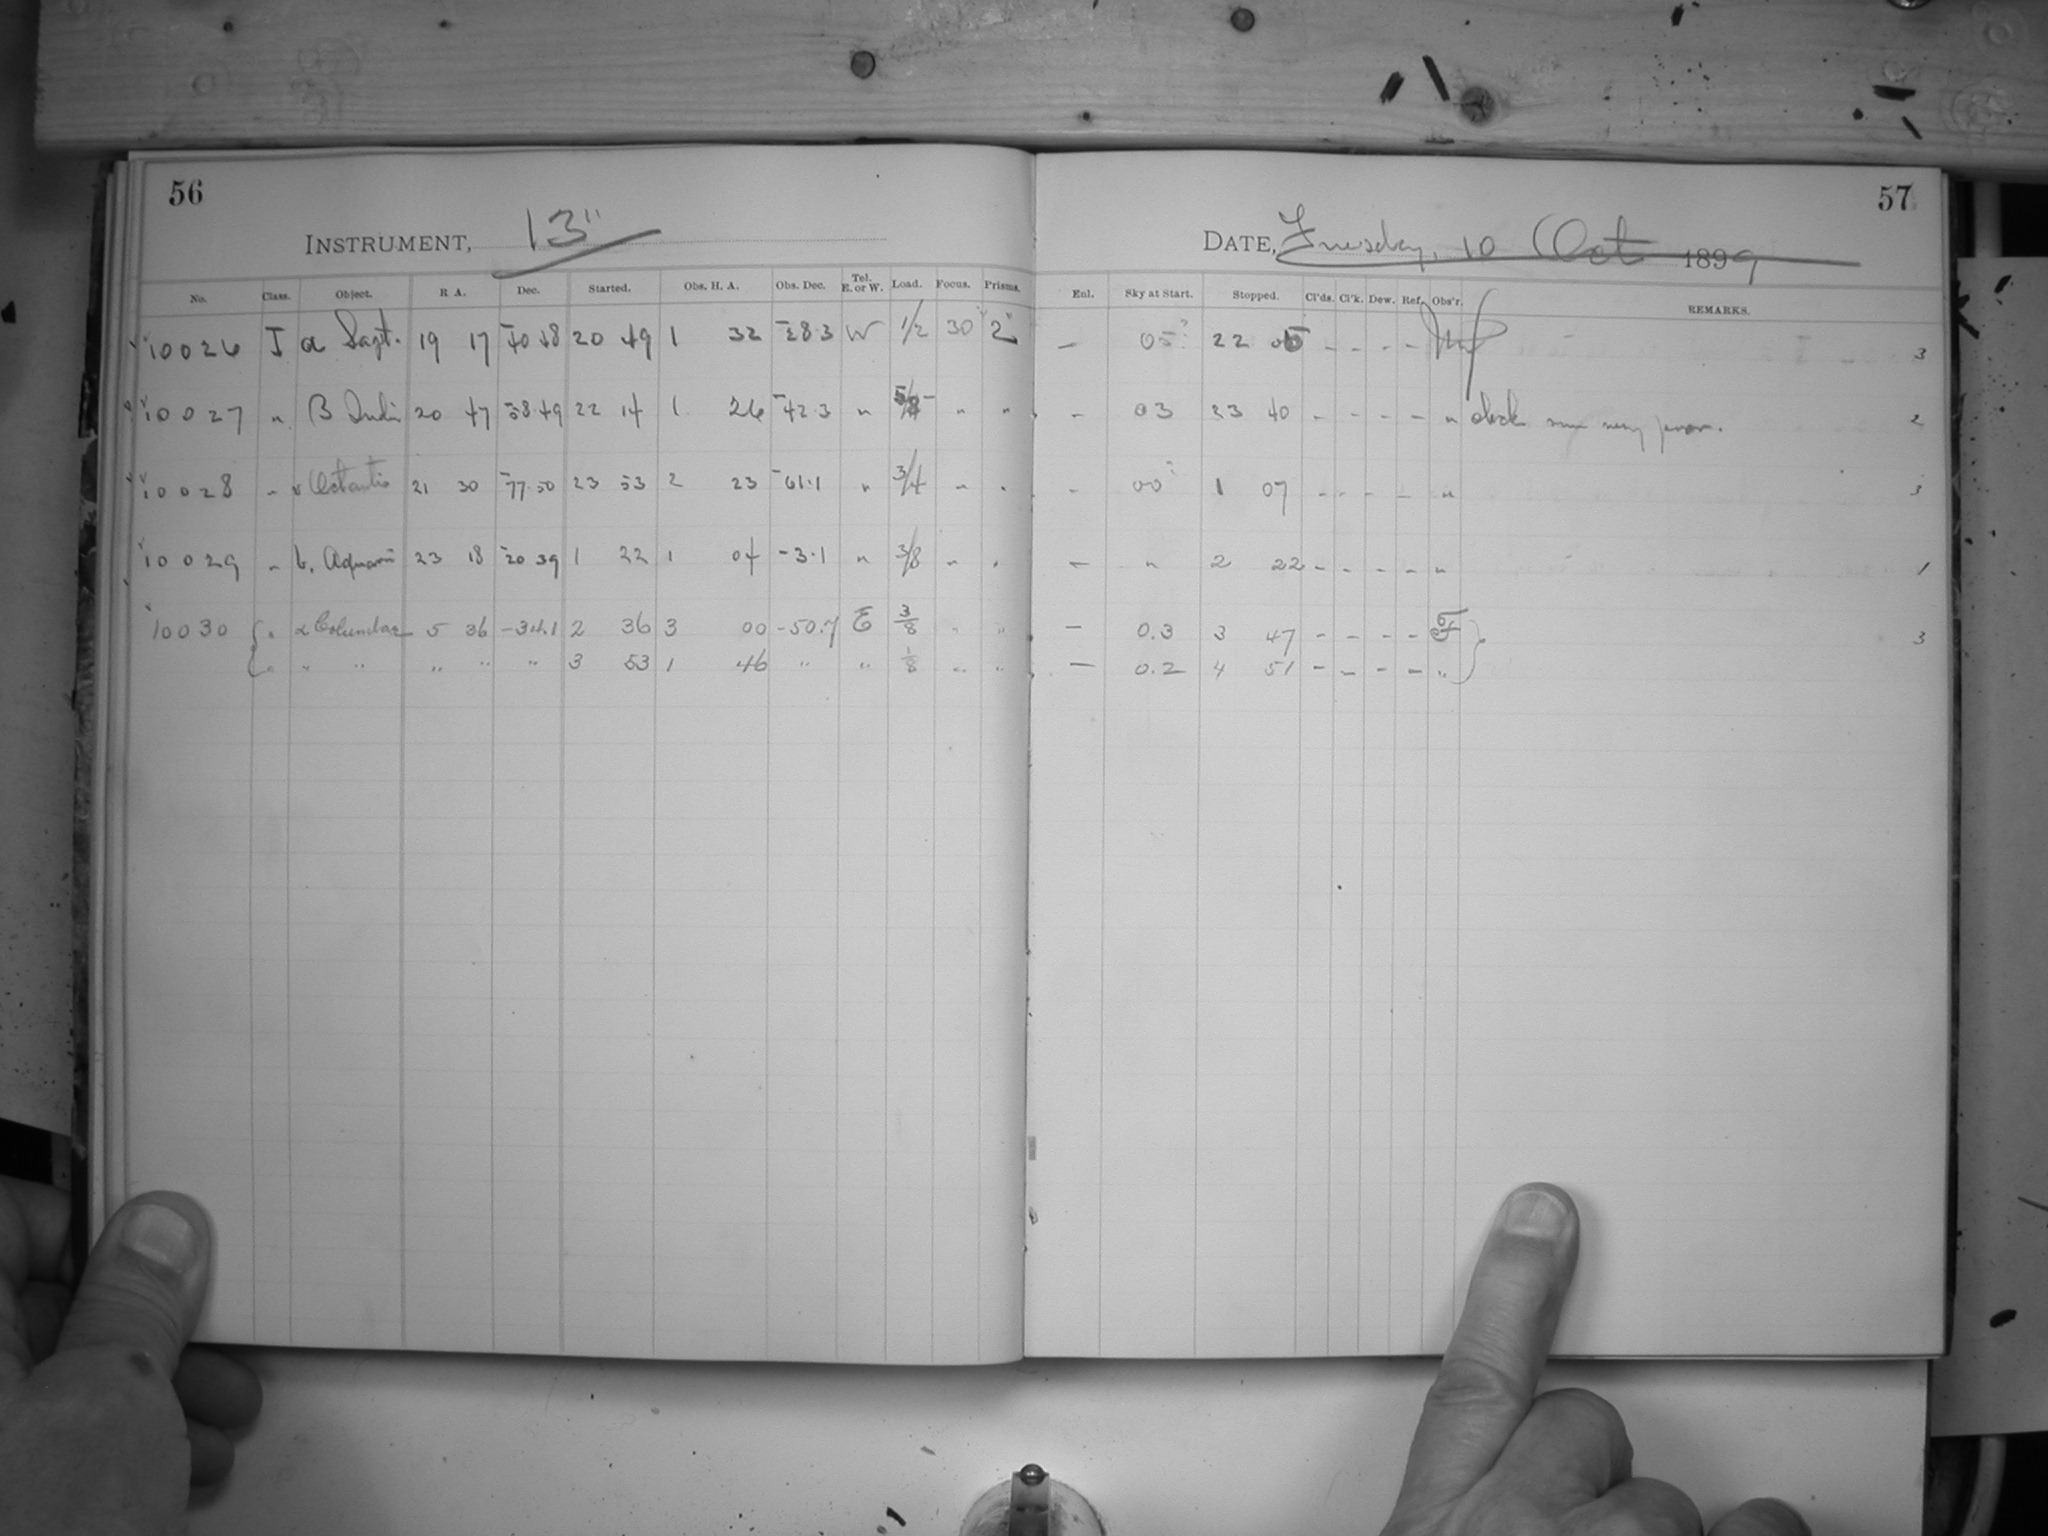 56
INSTRUMENT, 13"
No. Class. Object. R A. Dec. Started. Obs. H. A. Obs. Dec. Tel. E. or W. Load. Focus. Prisms.
10026 I α Sagt. 19 17 -40 48 20 49 1 32 -28.3 W 1/2 30 2
10027 " β Indi 20 47 -58.49 22 14 1 26 -42.3 " " "
10028 " ν Octantis 21 30 -77.50 23 53 2 23 -61.1 " 3/4 " "
10029 " b, Aquarii 23 18 -20 39 1 22 1 04 -3.1 " 3/8 " "
10030 " α Columbae 5 36 -34.1 2 36 3 00 -50.7 E 3/8 " "
" " " " " " 3 53 1 46 " " 1/8 " "
57
DATE, Tuesday, 10 Oct 1899
Enl. Sky at Start. Stopped. Cl'ds. Cl'k. Dew. Ref. Obs'r. REMARKS.
– 05? 22 05 – – – – 3
– 03 23 40 – – – – " clock run very poor. 2
– 00? 1 07 – – – – " 3
– " 2 22 – – – – " 1
– 0.3 3 47 – – – – 3
– 0.2 4 51 – – – – "